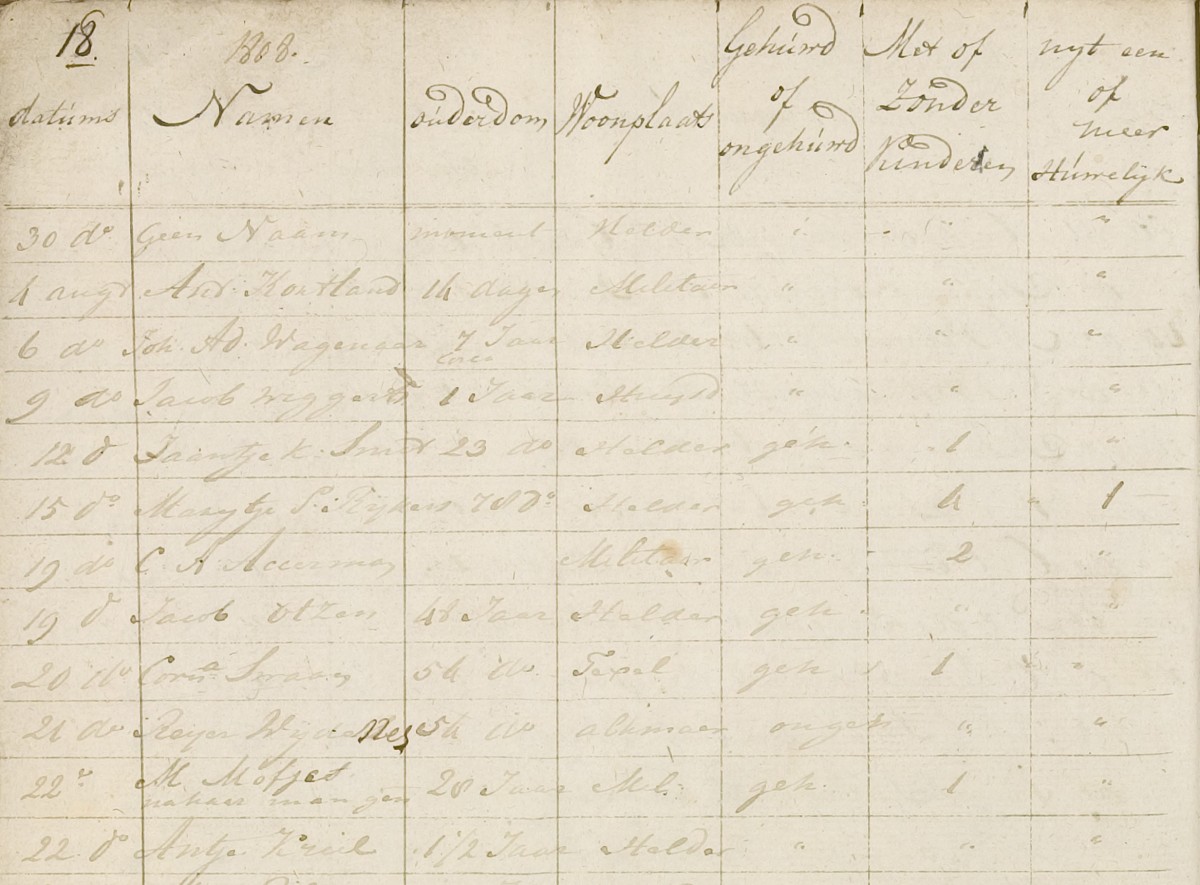 18. 1808. Gehúwd Met of uyt een
datúms Namen oúderdom Woonplaats of Zonder of
ongehúwd Kinderen meer
Húwelijk
30 do Geen Naam moment Helder " " "
4 augs And. Kortland 14 dagen Militair " " "
6 do Joh. Ad. Wagenaar 7 Jaar Helder " " "
9 do Jacob Wiggerts 1 Jaar Huysd " " "
12 do Jaantje K. Smit 23 do Helder geh. 1 "
15 do Marytje P. Rykers 78 do Helder geh 4 " 1
19 do C. A. Acerman Militair geh. 2 "
19 do Jacob Otzen 48 Jaar Helder geh " "
20 do Corna Smaan 54 do Texel geh 1 " "
21 do Reyer Wydenes 54 do alkmaer ongeh " "
22 do M Mofjes 28 Jaar Mil. geh. 1 "
na haar man gen
22 do Antje Kriel 1 1/2 Jaar Helder " " "